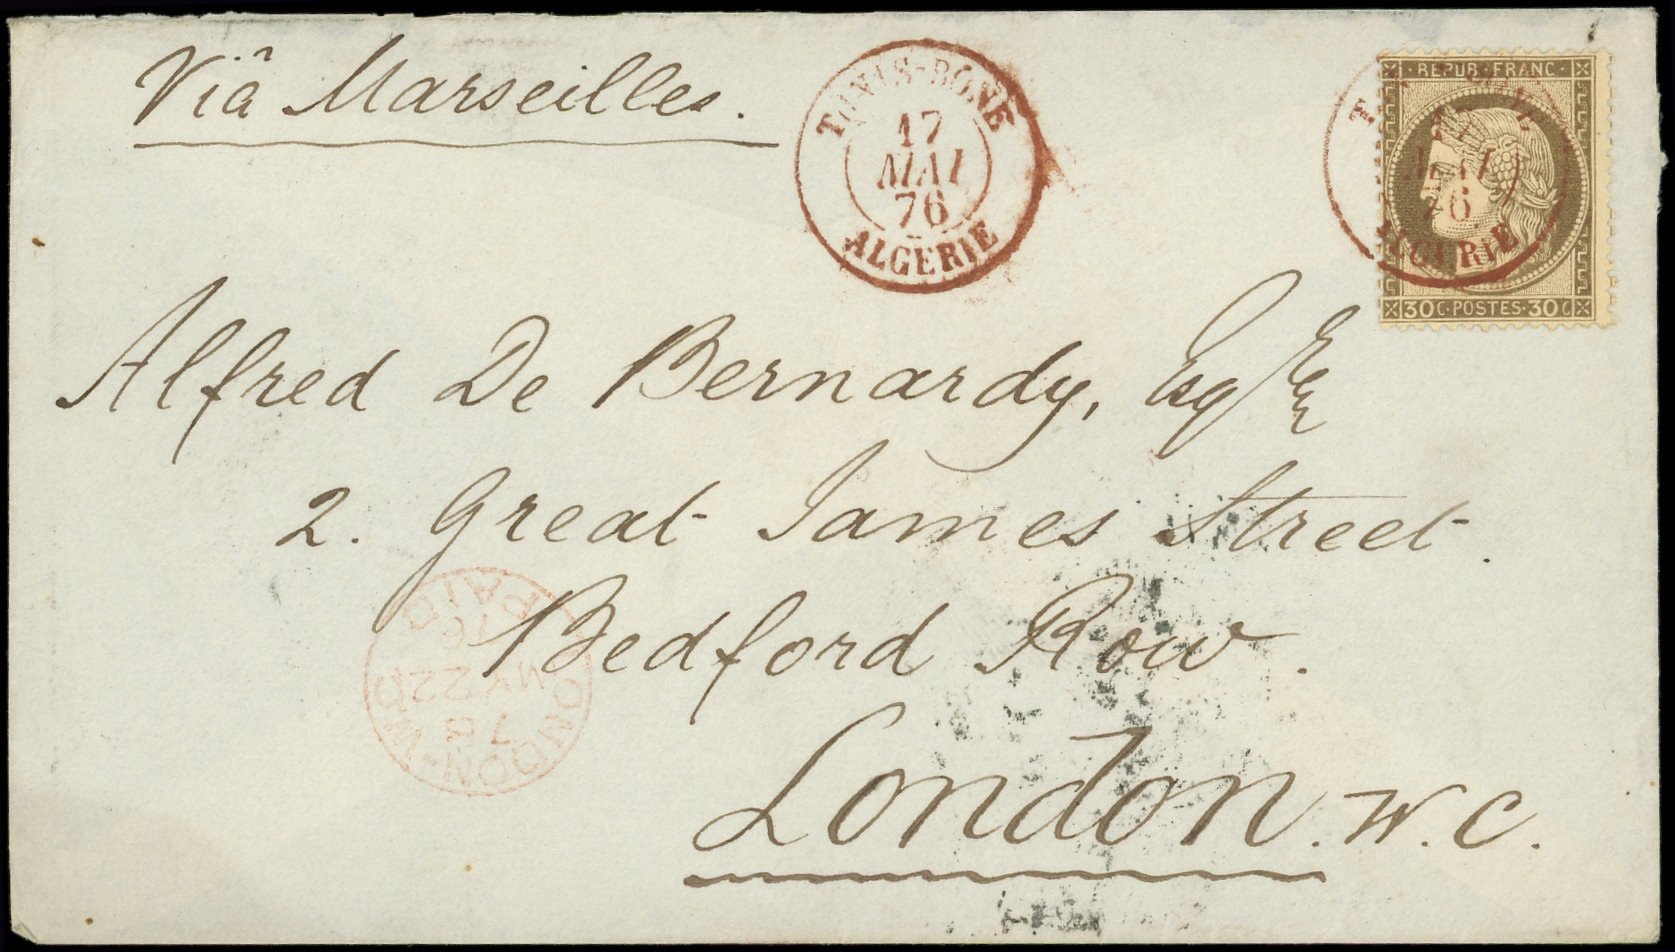 Viâ Marseilles.
TUNIS-BÔNE
17
MAI
76
ALGERIE
REPUB. FRANC.
MAI
76
ALGERIE
30 C. POSTES. 30 C
Alfred De Bernardy, Esqre
2. Great James Street.
Bedford Row.
London. W. C.
LONDON. W.C
PAID
MY 22
76